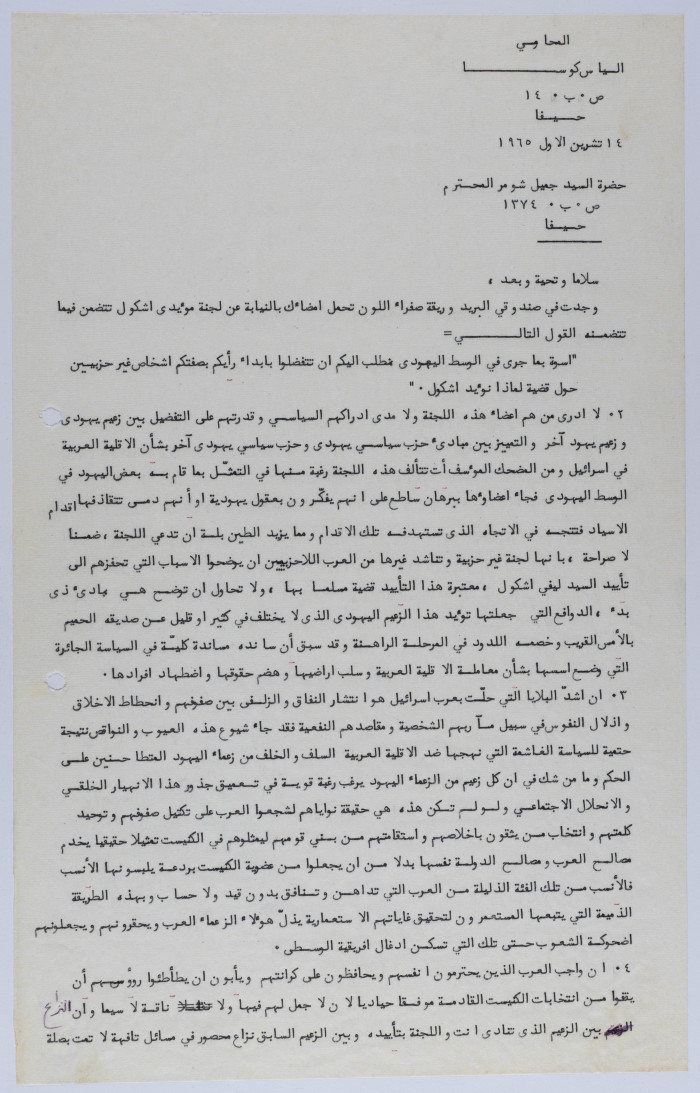 المحامي
الياس كوسا
ص٠ب٠ ١٤
حيفا
١٤ تشرين الاول ١٩٦٥
حضرة السيد جميل شومر المحترم
ص٠ب٠ ١٣٧٤
حيفا
سلاما وتحية وبعد ،
وجدت في صندوقي البريد وريقة صفراء اللون تحمل امضاءك بالنيابة عن لجنة مؤيدي اشكول تتضمن فيما
تتضمنه القول التالي =
"اسوة بما جرى في الوسط اليهودى نطلب اليكم ان تتفضلوا بابداء رأيكم بصفتكم اشخاص غير حزبيين
حول قضية لماذا نؤيد اشكول ٠"
٠٢ لا ادرى من هم اعضاء هذه اللجنة ولا مدى ادراكهم السياسي وقدرتهم على التفضيل بين زعيم يهودى
وزعيم يهود آخر والتمييز بين مبادىء حزب سياسي يهودى وحزب سياسي يهودى آخر بشأن الاقلية العربية
في اسرائيل ومن المضحك المؤسف أن تتألف هذه اللجنة رغبة منها في التمثّل بما قام به بعض اليهود في
الوسط اليهودى فجاء اعضاؤها ببرهان ساطع على انهم يفكّرون بعقول يهودية او أنهم دمى تتقاذفها اقدام
الاسياد فتتجه في الاتجاه الذى تستهدفه تلك الاقدام ومما يزيد الطين بلة ان تدعي اللجنة ، ضمنا
لا صراحة ، بانها لجنة غير حزبية وتناشد غيرها من العرب اللاحزبيين ان يوضحوا الاسباب التي تحفزهم الى
تأييد السيد ليفي اشكول ، معتبرة هذا التأييد قضية مسلما بها ، ولا تحاول ان توضح هي بادىء ذى
بدء ، الدوافع التي جعلتها تؤيد هذا الزعيم اليهودى الذى لا يختلف في كثير او قليل عن صديقه الحميم
بالأمس القريب وخصمه اللدود في المرحلة الراهنة وقد سبق أن سانده مساندة كليّة في السياسة الجائرة
التي وضع اسسها بشأن معاملة الاقلية العربية وسلب اراضيها وهضم حقوقها واضطهاد افرادها ٠
٠٣ ان اشدّ البلايا التي حلّت بعرب اسرائيل هو انتشار النفاق والزلفى بين صفوفهم وانحطاط الاخلاق
واذلال النفوس في سبيل مآربهم الشخصية ومقاصدهم النفعية فقد جاء شيوع هذه العيوب والنواقص نتيجة
حتمية للسياسة الغاشمة التي نهجها ضد الاقلية العربية السلف والخلف من زعماء اليهود المتطاحنين على
الحكم وما من شك في ان كل زعيم من الزعماء اليهود يرغب رغبة قوية في تعميق جذور هذا الانهيار الخلقي
والانحلال الاجتماعي ولو لم تكن هذه هي حقيقة نواياهم لشجعوا العرب على تكتيل صفوفهم وتوحيد
كلمتهم وانتخاب من يثقون باخلاصهم واستقامتهم من بني قومهم ليمثلوهم في الكنيست تمثيلا حقيقيا يخدم
مصالح العرب ومصالح الدولة نفسها بدلا من ان يجعلوا من عضوية الكنيست بردعة يلبسونها الأنسب
فالأنسب من تلك الفئة الذليلة من العرب التي تداهن وتنافق بدون قيد ولا حساب وبهذه الطريقة
الذميمة التي يتبعها المستعمرون لتحقيق غاياتهم الاستعمارية يذلّ هؤلاء الزعماء العرب ويحقرونهم ويجعلونهم
اضحوكة الشعوب حتى تلك التي تسكن ادغال افريقية الوسطى ٠
٠٤ ان واجب العرب الذين يحترمون انفسهم ويحافظون على كرامتهم ويأبون ان يطأطئوا رؤوسهم أن
يقفوا من انتخابات الكنيست القادمة موقفا حياديا لان لا جمل لهم فيها ولا ناقة لا سيما وأن النزاع
بين الزعيم الذى تنادى انت واللجنة بتأييده وبين الزعيم السابق نزاع محصور في مسائل تافهة لا تمت بصلة